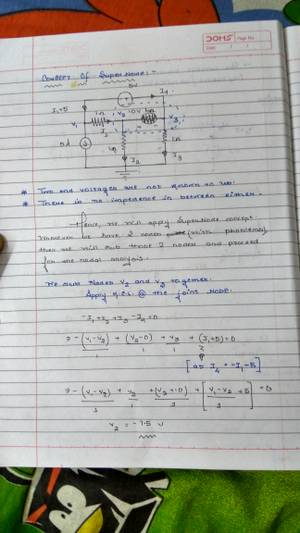 DOMS
Page No.
Date
Concept Of SuperNode:-
5V
I4
I1+5
1Ω
V2
10V
V3
V1
I1
5A
1Ω
1Ω
I2
I3
* Two end voltages are not known to us.
* There is no impedance in between either.
Hence, we will apply SuperNode concept
we have 2 nodes (with
then we will sub those 2 nodes and proceed
for the nodal analysis.
We sum Nodes V2 and V3 together.
Apply K.C.L @ the joint Node.
-I1+I2+I3-I4=0
⇒ -(V1-V2)/1 + (V2-0)/1 + V3/1 + (I1+5)=0
[as I4 = -I1-5]
⇒ -(V1-V2)/1 + V2/1 + (V3-0)/1 + [V1-V2/1 +5] =0
V2 = -7.5 V